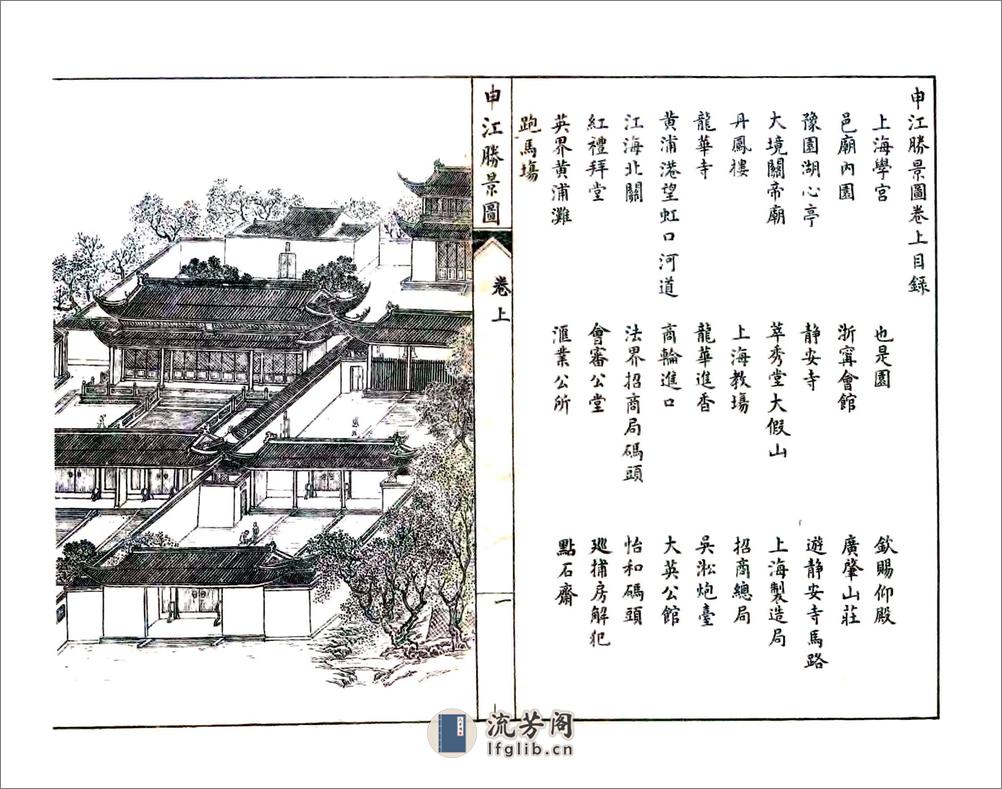 申江勝景圖卷上目録
上海學宮
也是園
欽賜仰殿
邑廟內園
浙甯會館
廣肇山莊
豫園湖心亭
静安寺
遊静安寺馬路
大境關帝廟
萃秀堂大假山
上海製造局
丹鳳樓
上海教塲
招商總局
龍華寺
龍華進香
吳淞炮臺
黄浦港望虹口河道
商輪進口
大英公館
江海北關
法界招商局碼頭
怡和碼頭
紅禮拜堂
會審公堂
巡捕房解犯
英界黄浦灘
滙業公所
點石齋
跑馬塲
申江勝景圖
卷上
一
流芳阁
lfglib.cn